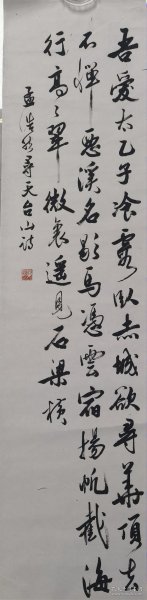 吾爱太乙子冷霞卧赤城欲寻华顶去
不惮恶溪名歇马凭云宿扬帆截海
行高高翠微里遥见石梁横
孟浩然寻天台山诗